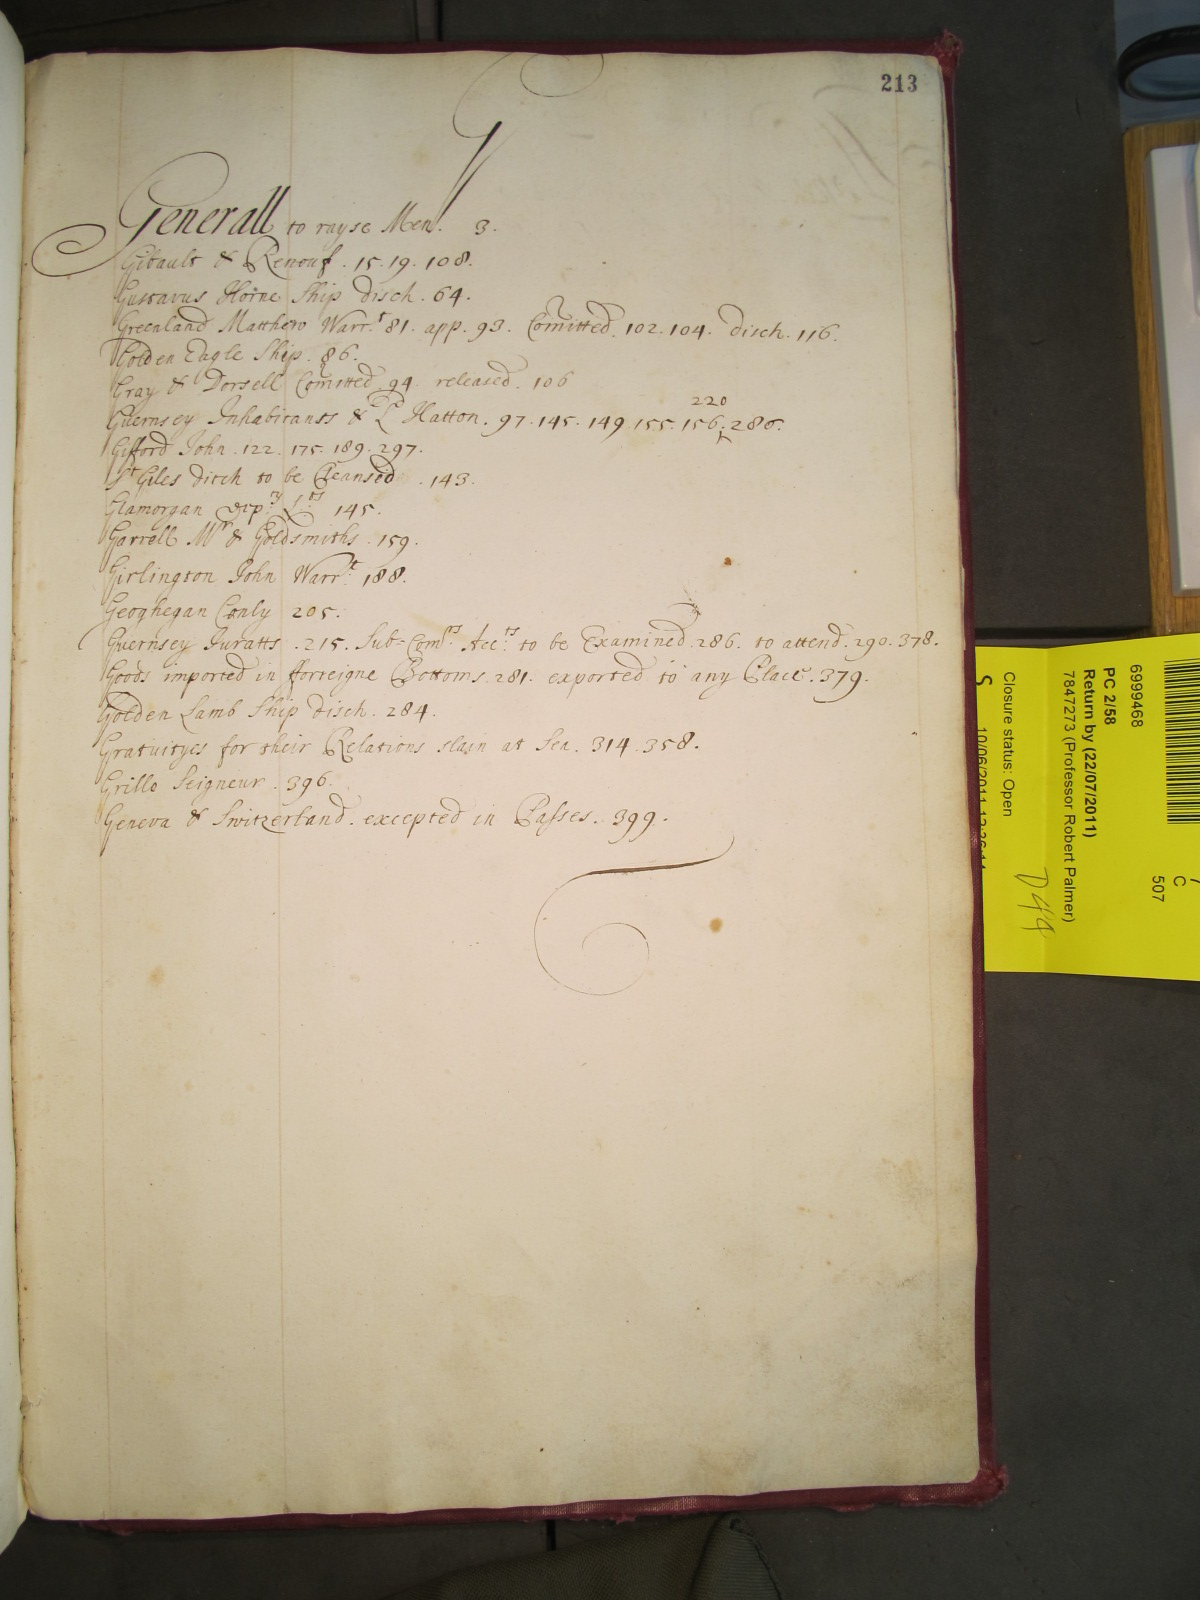 213
G
Generall to rayse Men. 3.
Gibault & Renouf. 15. 19. 108.
Gustavus Horne Ship disch. 64.
Greenland Matthew Warr:t 81. app. 93. Comitted. 102. 104. disch. 116.
Golden Eagle Ship. 86.
Gray & Dorsell Comitted 94. released. 106
220
Guernsey Inhabitants & Ld Hatton. 97. 145. 149. 155. 156. 286.
Gifford John. 122. 175. 189. 297.
St Giles ditch to be Cleansed. 143.
Glamorgan Dep:ty L:ts 145.
Garrell Mr & Goldsmiths. 159.
Girlington John Warr:t 188.
Geoghegan Conly 205.
Guernsey Juratts. 215. Sub-Com:rs Acc:ts to be Examined. 286. to attend. 290. 378.
Goods imported in fforreigne Bottoms. 281. exported to any Place. 379.
Golden Lamb Ship disch. 284.
Gratuityes for their Relations slain at Sea. 314. 358.
Grillo Seigneur. 396.
Geneva & Switzerland. excepted in Passes. 399.
6999468
PC 2/58
Return by (22/07/2011)
7847273 (Professor Robert Palmer)
Closure status: Open
S 10/06/2011
C
507
D49